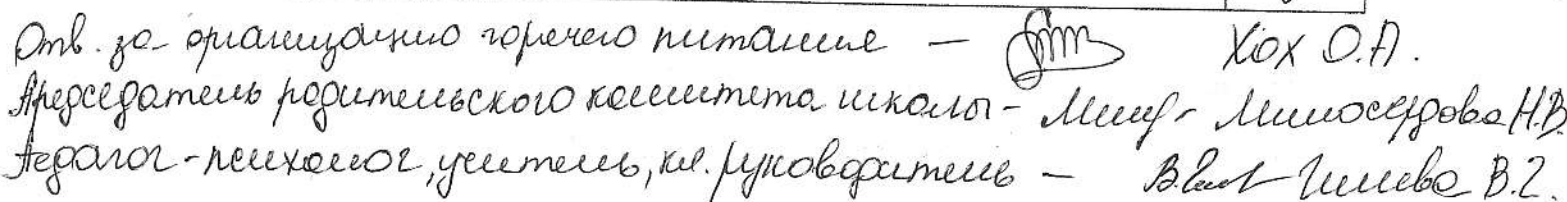 Отв. за организацию горячего питания — Хох О.А.
Председатель родительского комитета школы - Милосердова Н.В.
Педагог-психолог, учитель, кл. руководитель —  В.Г.